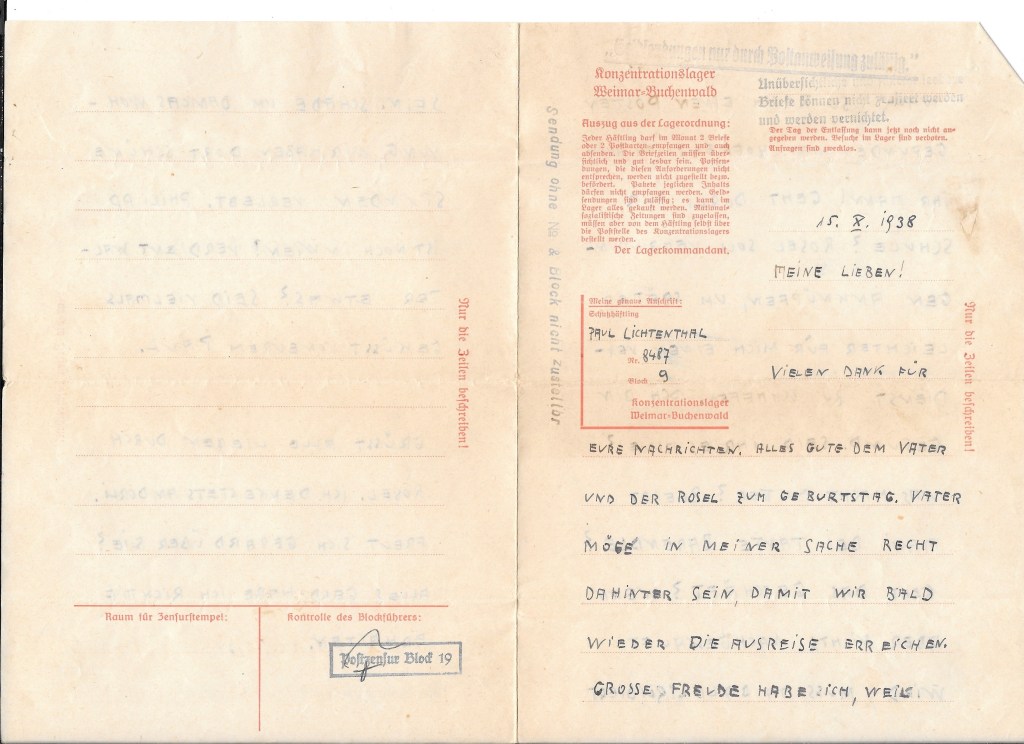 Nur die Zeilen beschreiben!
Raum für Zensurstempel:
Kontrolle des Blockführers:
Postzensur Block 19
Sendung ohne No & Block nicht zustellbar
"Geldsendungen nur durch Postanweisung zulässig."
Konzentrationslager
Weimar-Buchenwald
Auszug aus der Lagerordnung:
Jeder Häftling darf im Monat 2 Briefe
oder 2 Postkarten empfangen und auch
absenden. Die Briefzeilen müssen über-
sichtlich und gut lesbar sein. Postsen-
dungen, die diesen Anforderungen nicht
entsprechen, werden nicht zugestellt bezw.
befördert. Pakete jeglichen Inhalts
dürfen nicht empfangen werden. Geld-
sendungen sind zulässig; es kann im
Lager alles gekauft werden. National-
sozialistische Zeitungen sind zugelassen,
müssen aber von dem Häftling selbst über
die Poststelle des Konzentrationslagers
bestellt werden.
Der Lagerkommandant.
Unübersichtliche
Briefe können nicht zensiert werden
und werden vernichtet.
Der Tag der Entlassung kann jetzt noch nicht an-
gegeben werden. Besuche im Lager sind verboten.
Anfragen sind zwecklos.
15. X. 1938
MEINE LIEBEN!
Meine genaue Anschrift:
Schutzhäftling
PAUL LICHTENTHAL
Nr. 8487
Block 9
Konzentrationslager
Weimar-Buchenwald
VIELEN DANK FÜR
EURE NACHRICHTEN. ALLES GUTE DEM VATER
UND DER ROSEL ZUM GEBURTSTAG. VATER
MÖGE IN MEINER SACHE RECHT
DAHINTER SEIN, DAMIT WIR BALD
WIEDER DIE AUSREISE ERREICHEN.
GROSSE FREUDE HABE ICH, WEIL
Nur die Zeilen beschreiben!